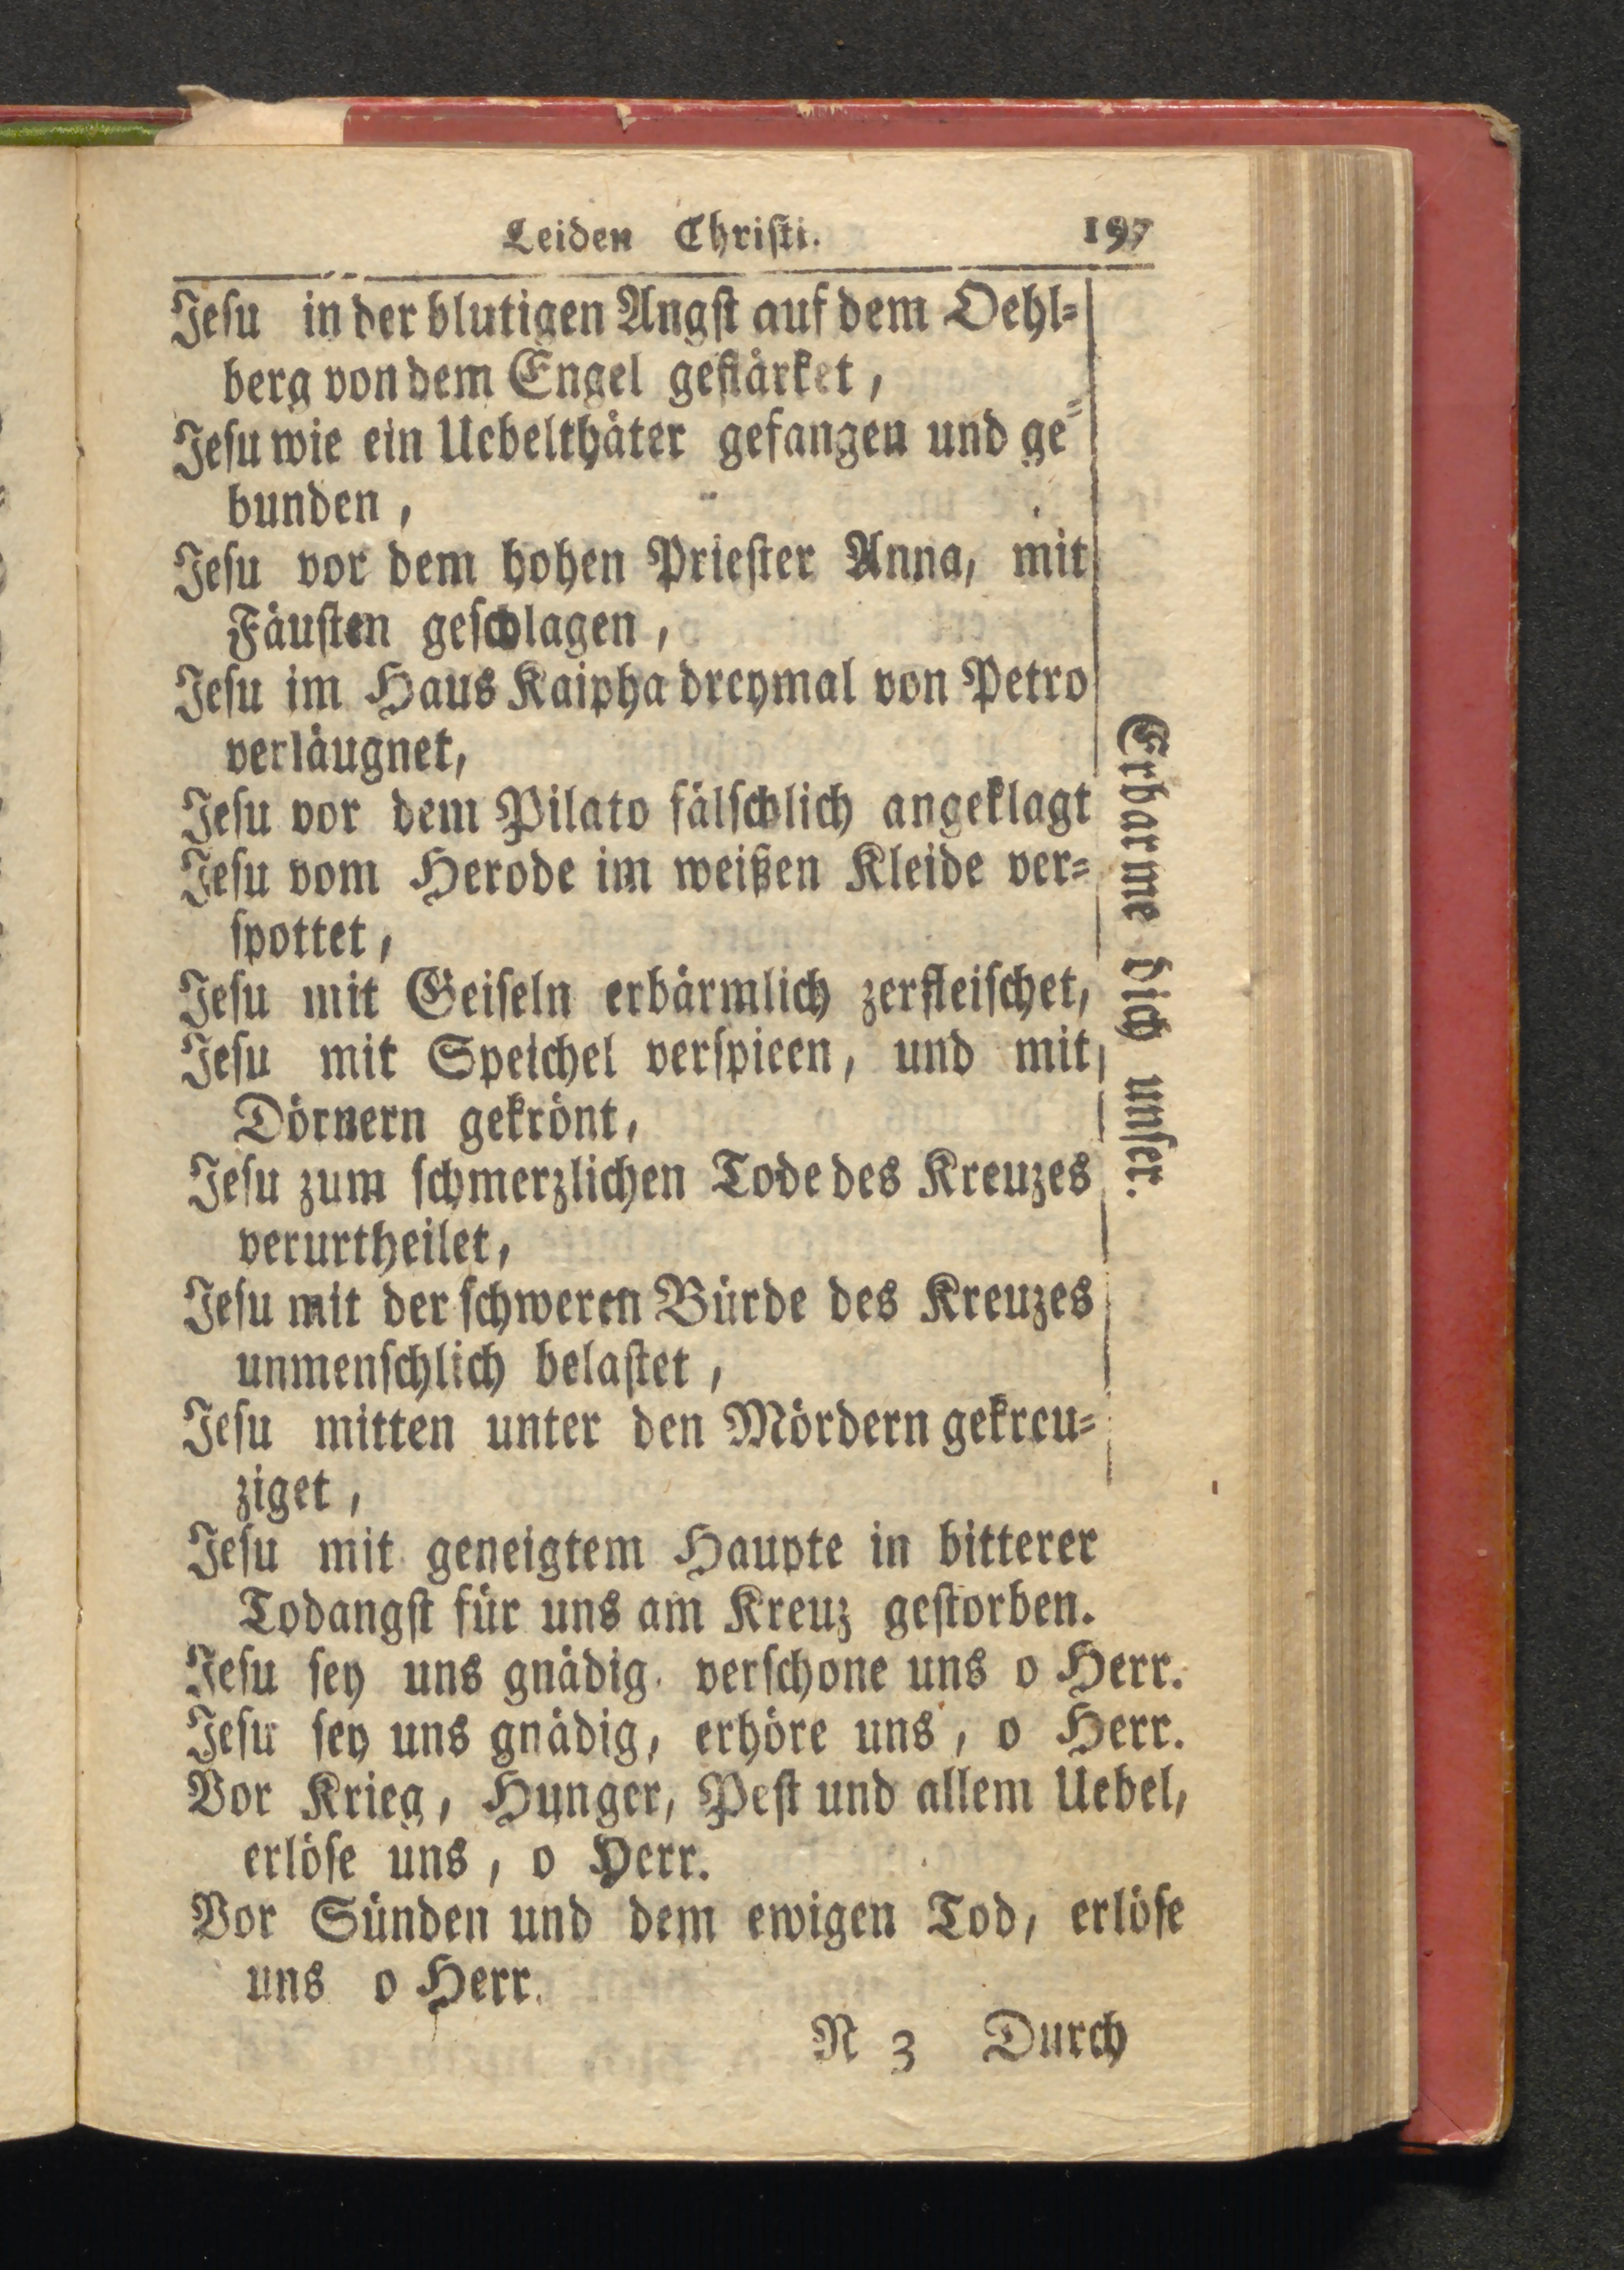 Leiden Chriſti. 197
Jeſu in der blutigen Angſt auf dem Oehl⸗
berg von dem Engel geſtärket,
Jeſu wie ein Uebelthäter gefangen und ge⸗
bunden,
Jeſu vor dem hohen Prieſter Anna, mit
Fäuſten geſchlagen,
Jeſu im Haus Kaipha dreymal von Petro
verläugnet,
Jeſu vor dem Pilato fälſchlich angeklagt
Jeſu vom Herode im weißen Kleide ver⸗
ſpottet,
Jeſu mit Geiſeln erbärmlich zerfleiſchet,
Jeſu mit Speichel verſpieen, und mit
Dörnern gekrönt,
Jeſu zum ſchmerzlichen Tode des Kreuzes
verurtheilet,
Jeſu mit der ſchweren Bürde des Kreuzes
unmenſchlich belaſtet,
Jeſu mitten unter den Mördern gekreu⸗
ziget,
Erbarme dich unſer.
Jeſu mit geneigtem Haupte in bitterer
Todangſt für uns am Kreuz geſtorben.
Jeſu ſey uns gnädig, verſchone uns o Herr.
Jeſu ſey uns gnädig, erhöre uns, o Herr.
Vor Krieg, Hunger, Peſt und allem Uebel,
erlöſe uns, o Herr.
Vor Sünden und dem ewigen Tod, erlöſe
uns o Herr.
N 3 Durch